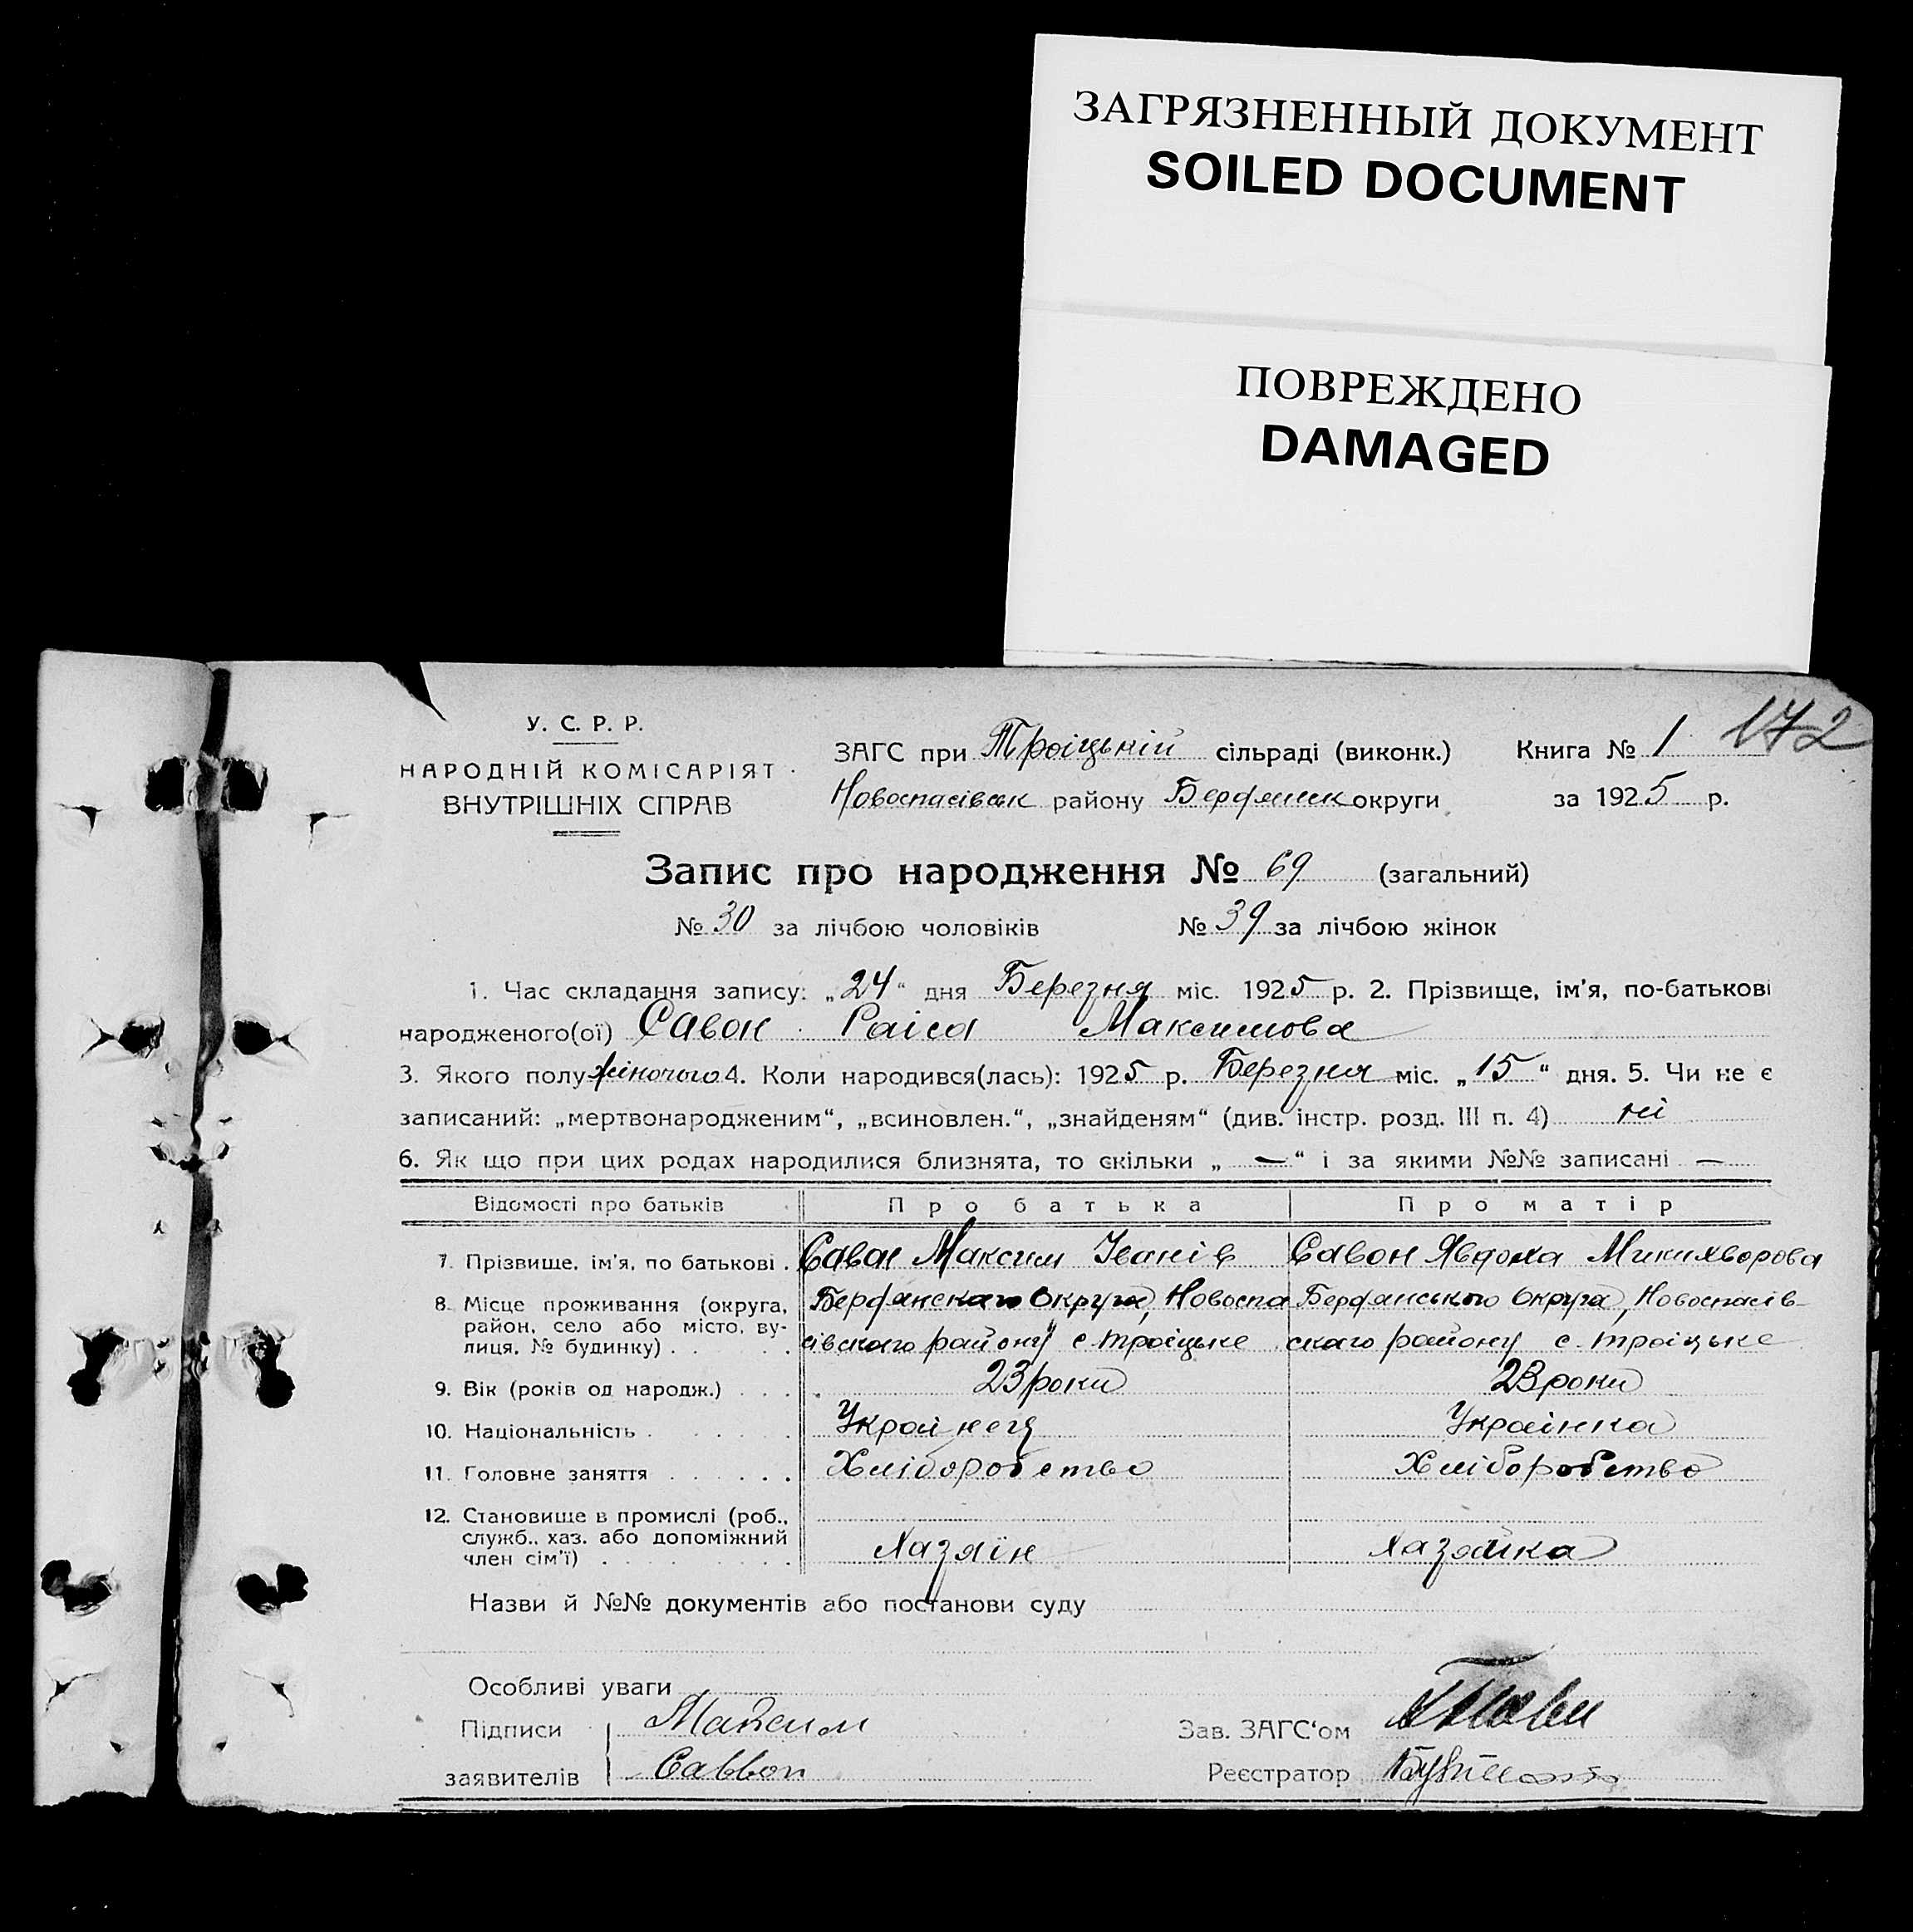 ЗАГРЯЗНЕННЫЙ ДОКУМЕНТ
SOILED DOCUMENT
ПОВРЕЖДЕНО
DAMAGED
172
У. С. Р. Р.
НАРОДНІЙ КОМІСАРІЯТ
ВНУТРІШНІХ СПРАВ
ЗАГС при Троіцькій сільраді (виконк.) Книга № 1
Новоспасівськ району Бердянск округи за 1925 р.
Запис про народження № 69 (загальний)
№ 30 за лічбою чоловіків № 39 за лічбою жінок
1. Час складання запису: „24“ дня Березня міс. 1925 р. 2. Прізвище, ім'я, по-батькові
народженого(ої) Савон Раіса Максимова
3. Якого полу жіночого 4. Коли народився(лась): 1925 р. Березня міс. „15“ дня. 5. Чи не є
записаний: „мертвонародженим“, „всиновлен.“, „знайденям“ (див. інстр. розд. III п. 4) ні
6. Як що при цих родах народилися близнята, то скільки „ — “ і за якими №№ записані —
Відомості про батьків Про батька Про матір
7. Прізвище, ім'я, по батькові . Савон Максим Іванів Савон Явдоха Микихворова
8. Місце проживання (округа, Бердянскаго Округа, Новоспа Бердянського Округа, Новоспасів-
район, село або місто, ву-
лиця, № будинку) . . . . . сівскаго району с Троіцьке скаго району с. Троіцьке
9. Вік (років од народж.) . . . 23 роки 23 роки
10. Національність . . . . . Украінец Украінка
11. Головне заняття . . . . . . Хліборобство Хліборобство
12. Становище в промислі (роб.,
служб., хаз. або допоміжний
член сім'ї) . . . . . . . . Хазяїн Хазяйка
Назви й №№ документів або постанови суду
Особливі уваги
Підписи Максим Зав. ЗАГС'ом
заявителів Саввон Реєстратор